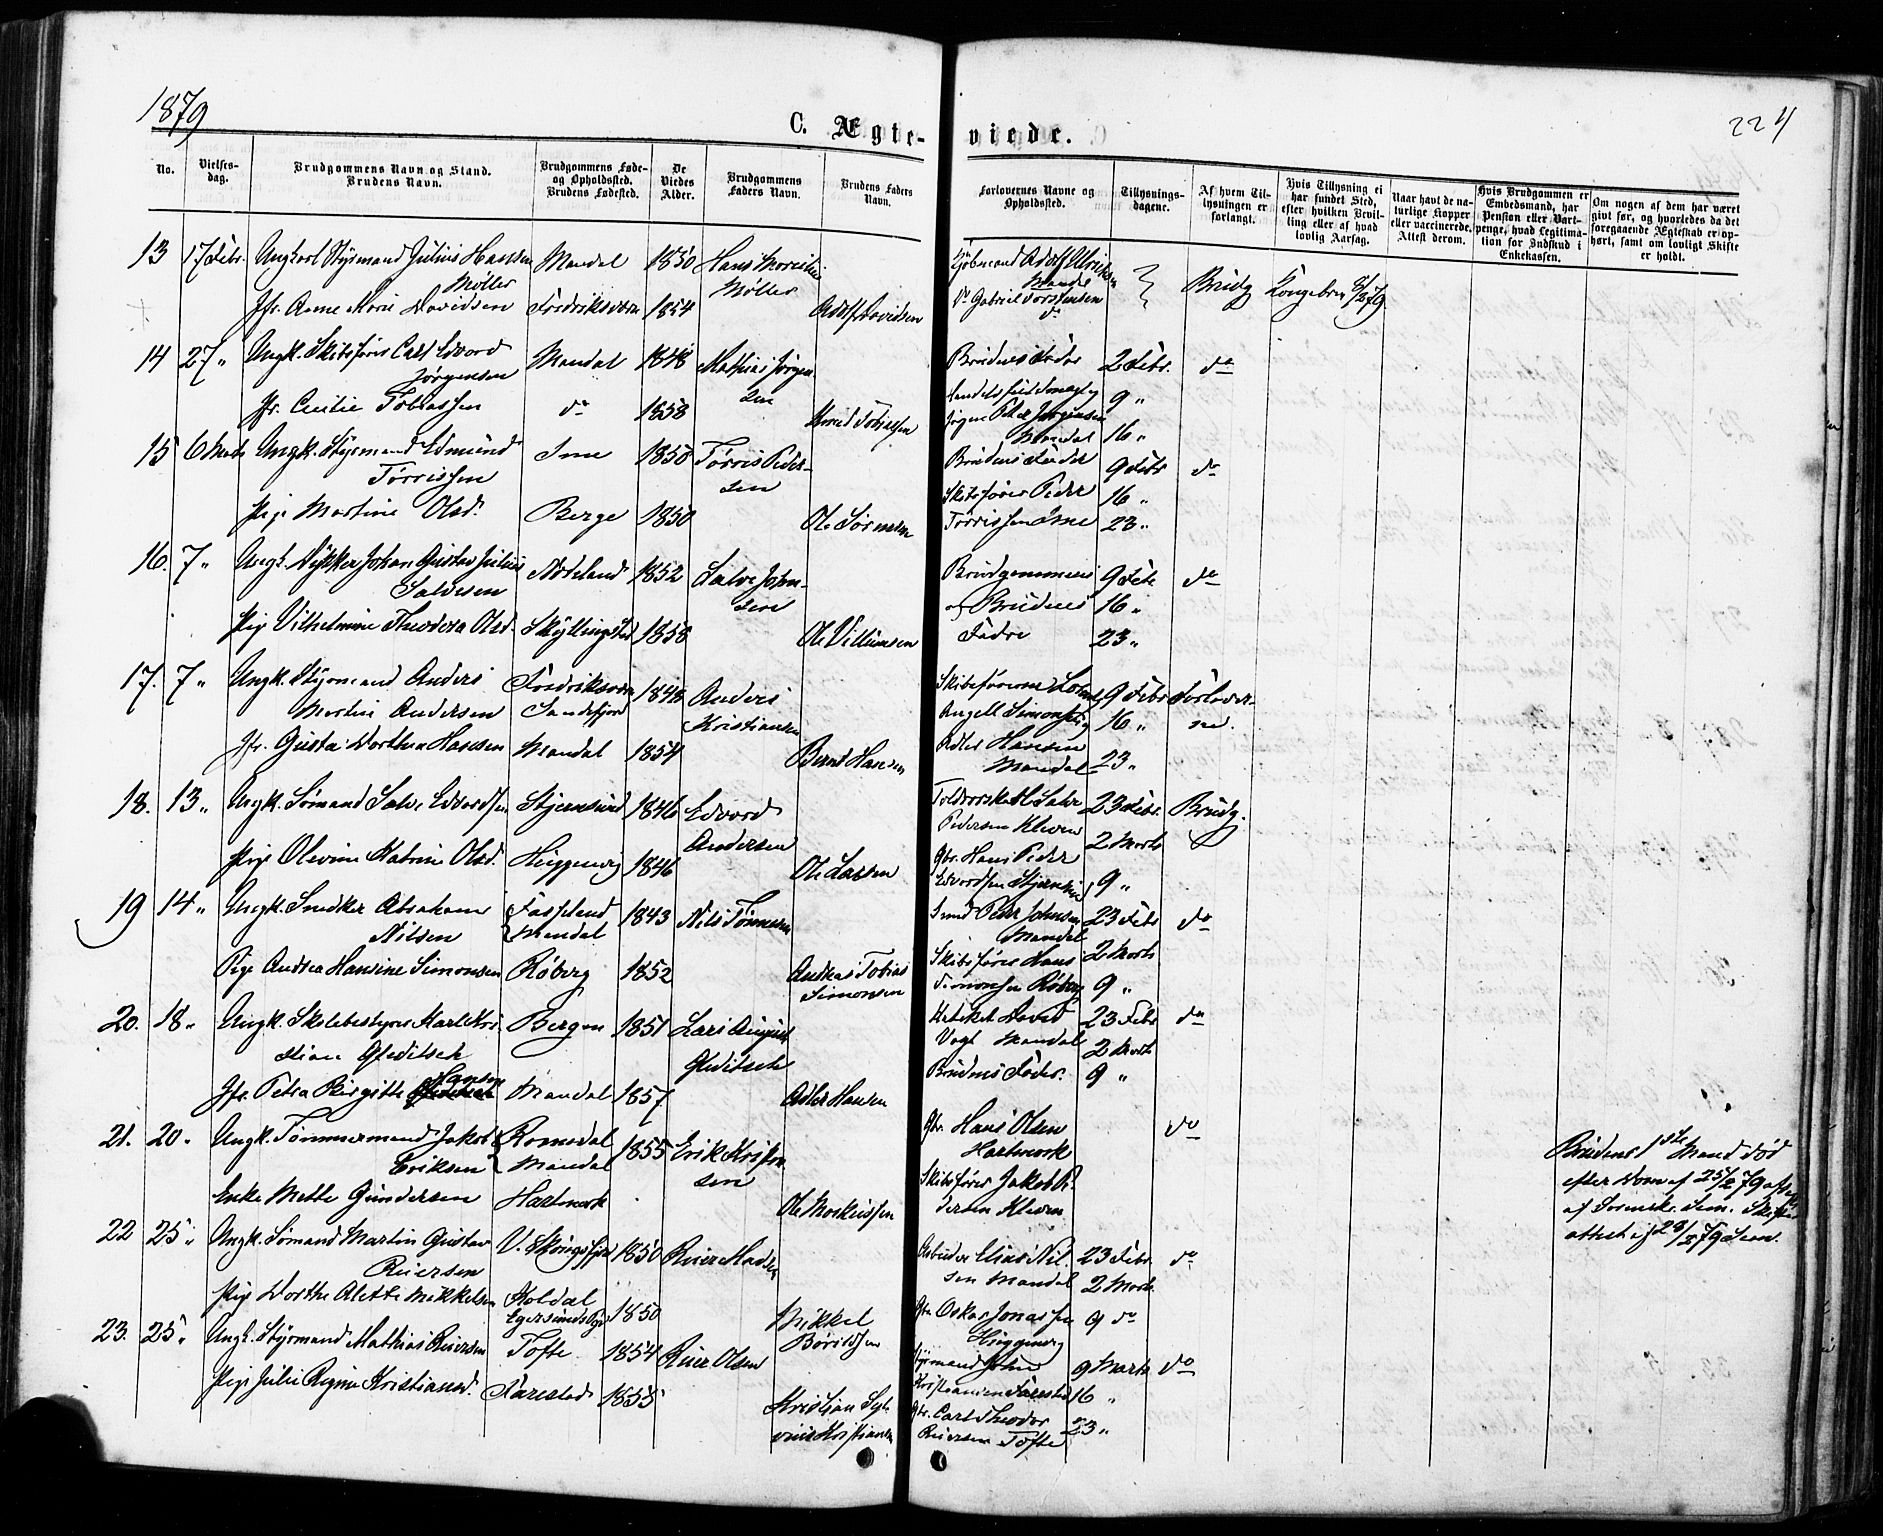 1879
C. Ægte-
viede.
224
No.
Vielses-
dag.
Brudgommens Navn og Stand.
Brudens Navn.
Brudgommens Føde-
og Opholdssted.
Brudens Fødested.
De
Viedes
Alder.
Brudgommens
Faders Navn.
Brudens Faders
Navn.
Forlovernes Navne og
Opholdssted.
Tillysnings-
dagene.
Af hvem Til-
lysningen er
forlangt.
Hvis Tillysning ei
har fundet Sted,
efter hvilken Bevil-
ling eller af hvad
lovlig Aarsag.
Naar havt de na-
turlige Kopper
eller vaccinerede.
Attest derom.
Hvis Brudgommen er
Embedsmand, har
Pension eller Vart-
penge, hvad Legitima-
tion for Indskud i
Enkekassen.
Om nogen af dem har været
givt før, og hvorledes da det
foregaaende Ægteskab er op-
hørt, samt om lovligt Skifte
er holdt.
13 17 Febr. Ungkarl Styrmand Julius Hansen Mandal 1850 Hans
Møller Møller
Jfr. Anne Marie Davidsen Fredriksværn 1854 Adolf Davidsen
Kjøbmand Adolf Ulriksen
Mandal
Do Gabriel Torstensen
do
Brudg Kongebrev
14 27 " Ungk. Skibsfører Carl Edvard Mandal 1848 Mathias Jørgen-
Jørgensen sen
Jfr. Cecilie Tobiassen do 1858 Tobiassen
Brudens Fader 2 Febr. do
9 "
Jørgen Peter Jørgensen
Mandal 16 "
15 6 Marts Ungk. Styrmand Edmund Ime 1850 Tørris Peder-
Tørrissen sen
Pige Martine Olsd. Berge 1850 Ole Sørensen
Brudens Fader 9 Febr do
Skibsfører Peder 16 "
Tørrissen Ime 23 "
16. 7 " Ungk. Johan Gustav Julius 1852 Salve John-
Salvesen sen
Pige Vilhelmine Theodora Olsd. Skyllingstad 1858 Ole Villumsen
Brudgommens 9 Febr do
og Brudens 16 "
Fædre 23 "
17. 7 " Ungk. Styrmand Anders Fredriksværn 1848 Anders
Martin Andersen Sandefjord Kristiansen
Jfr. Gusta Dorthea Hansen Mandal 1854 Bernt Hansen
Skibsførerne 9 Febr Forlover-
Angell Simonsen og 16 " ne.
Adler Hansen
Mandal 23 "
18. 13 " Ungk. Sømand Salve Edvardsen Stjernsund 1846 Edvard
Andersen
Pige Olevine Katrine Olsd. Hæggenvig 1846 Ole Larsen
Salve 23 Febr. Brudg.
Pedersen Kleven 2 Marts
Gbr. Hans Peder
Edvardsen Stjernsund 9 "
19 14 " Ungk. Snedker Abraham Fasseland 1843 Nils Tønnesen
Nilsen Mandal
Pige Andrea Hansine Simonsen Røberg 1852 Andreas Tobias
Simonsen
Peder Johnsen 23 Febr do
Mandal
Skibsfører Hans 2 Marts
Simonsen Røberg 9 "
20. 18 " Ungk. Skolebestyrer Karl Kri- Bergen 1851 Lars August
stian Gleditsch Gleditsch
Jfr. Petra Birgitte Hansen Mandal 1857 Adler Hansen
David 23 Febr do
Vogt Mandal 2 Marts
Brudens Fader. 9 "
21. 20 " Ungk. Tømmermand Jakob Romsdal 1855 Erik Kristen-
Eriksen Mandal sen
Enke Mette Gundersen Hartmark Ole Markussen
Gbr. Hans Olsen do
Hartmark
Skibsfører Jakob Pe-
dersen Kleven
Brudens 1ste Mand død
efter Dom af 25/2 79
attest af 28/2 79
22 25 " Ungk. Sømand Martin Gustav V. Skøngsfjord 1850 Reier Madsen
Reiersen
Pige Dorthe Alette Mikkelsen Koldal 1850 Mikkel
Egersunds Børildsen
Arbeider Elias Nil- 23 Febr. do
sen Mandal 2 Marts
Gbr. Oskar Jonassen 9 do
Hæggenvig
23. 25 " Ungk. Styrmand Mathias Reiersen Tofte 1854 Reier Olsen
Pige Julie Regine Kristiansd. Færestad 1855 Kristian Syl-
vius Kristiansen
Styrmand John 9 Marts do
Kristiansen Færestad 16 "
Gbr. Carl Theodor 23 "
Reiersen Tofte